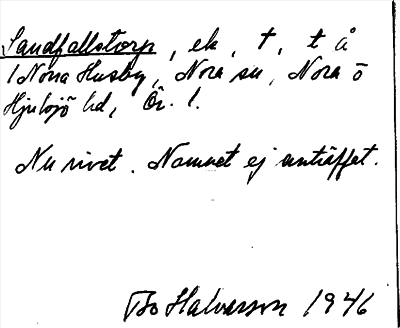 Sandfallstorp, ek, †, t å
1 Norra Husby, Nora sn, Nora ö
Hjulsjö hd, Ör. l.
Nu rivet. Namnet ej anträffat.
Bo Halvarson 1946